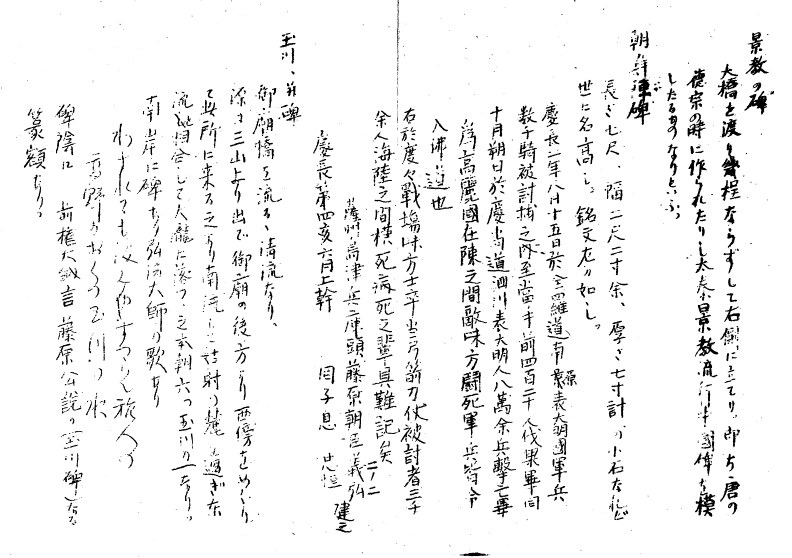 景教の碑
大橋を渡り幾程ならずして右側に立てり即ち唐の
徳宗の時に作られたりし太秦景教流行中国碑を模
したるものなりといふ。
朝鮮陣碑
長さ七尺、幅二尺二寸余、厚さ七寸計の小石なれど
世に名高し。銘文左の如し。
慶長二年八月十五日於全羅道南原表大明國軍兵
数千騎被討捕之内至當手前四百二十人伐果畢同
十月朔日於慶尚道泗川表大明人八萬余兵撃亡畢
為高麗國在陳之間敵味方鬪死軍兵皆令
入佛道也
右於度々戰場味方士卒当弓箭刀仗被討者三千
余人海陸之間横死病死之輩具難記矣
薩州島津兵庫頭藤原朝臣義弘
慶長第四亥六月上幹 同子息 忠恒 建之
玉川、碑
御廟橋を流るゝ清流なり、
源は三山より出で御廟の後方より西傍をめぐり
て此所に来る之より南流し の麓を過ぎな
流と相合して大瀧に落つ之本朝六つ玉川の一なり。
南岸に碑あり弘法大師の歌あり
わすれても汲やしつらん旅人の
高野のおくの玉川の水
碑陰に 前権大納言 藤原公説の玉川碑
篆額あり。